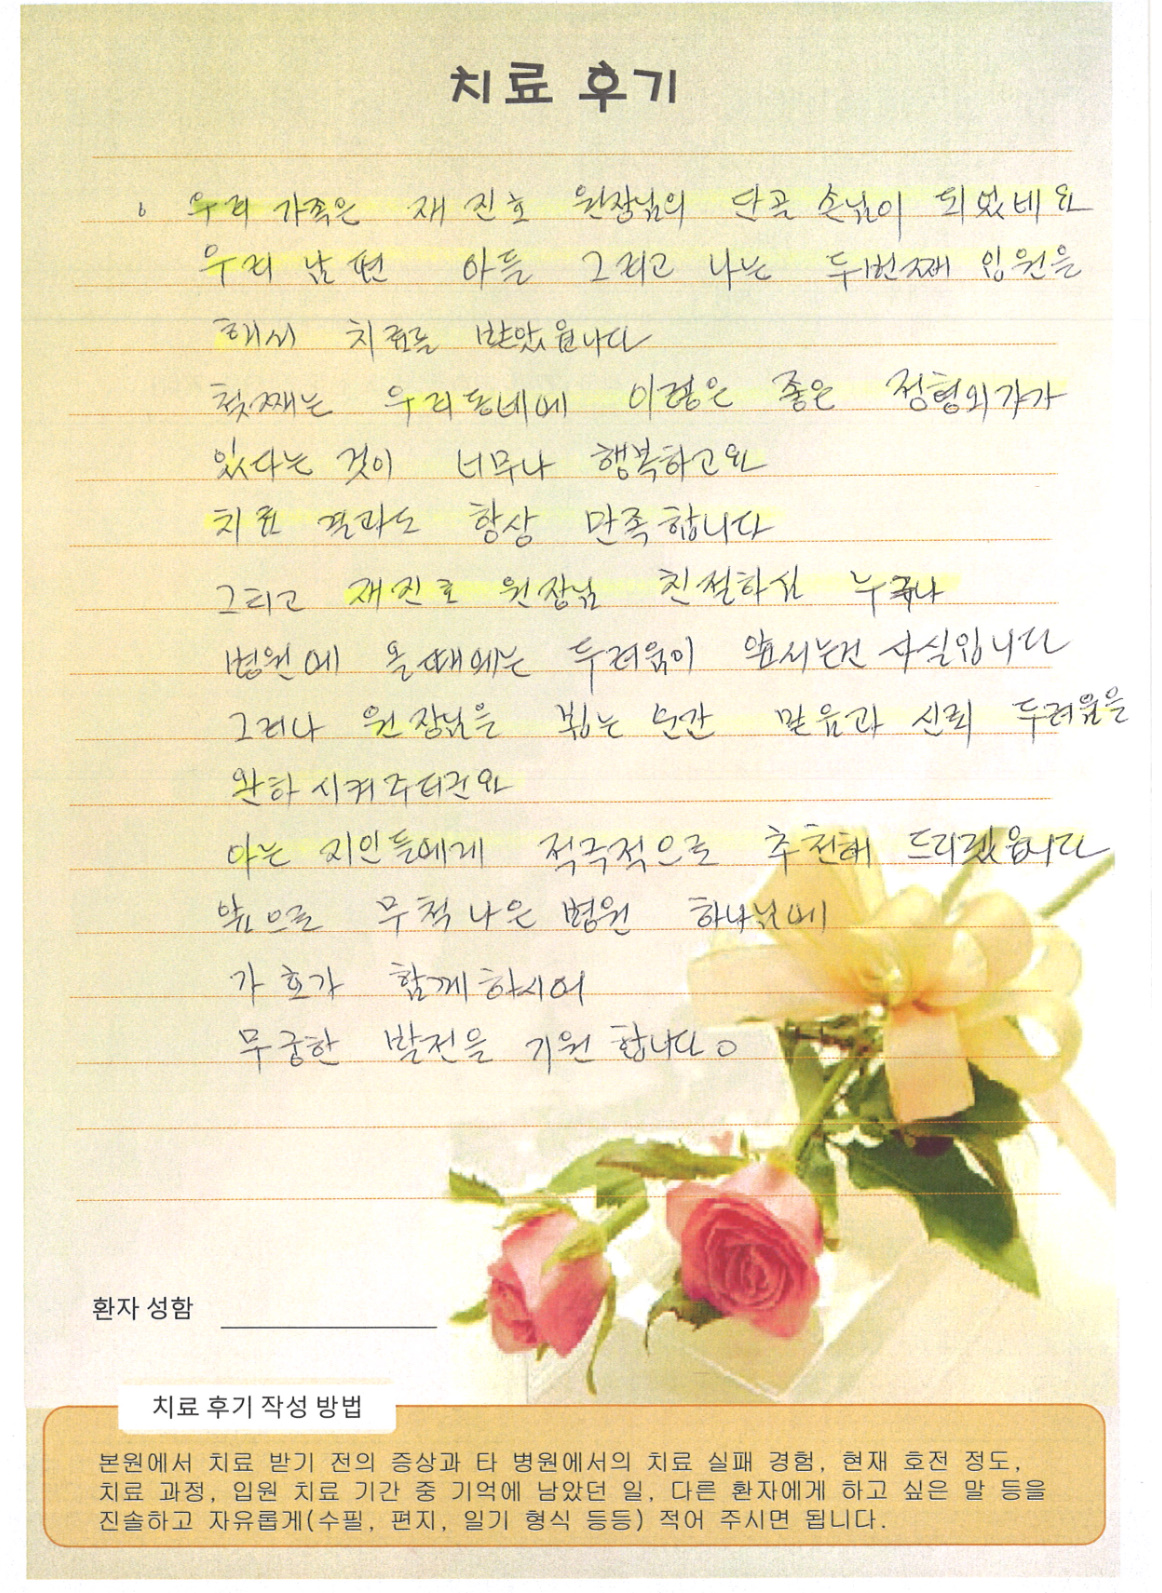 치료 후기
우리 가족은 재진호 원장님의 단골 손님이 되었네요
우리 남편 아들 그리고 나는 두번째 입원을
해서 치료를 받았읍니다
첫째는 우리동네에 이렇은 좋은 정형외가가
있다는 것이 너무나 행복하고요
치료 결과도 항상 만족합니다
그리고 재진호 원장님 친절하심 누구나
병원에 올때에는 두려움이 앞서는건 사실입니다
그러나 원장님을 뵙는 순간 믿음과 신뢰 두려움을
완하시켜주더군요
아는 지인들에게 적극적으로 추천해 드리겠읍니다
앞으로 무척나은 병원 하나님에
가호가 함께하시어
무궁한 발전을 기원 합니다。
환자 성함
치료 후기 작성 방법
본원에서 치료 받기 전의 증상과 타 병원에서의 치료 실패 경험, 현재 호전 정도,
치료 과정, 입원 치료 기간 중 기억에 남았던 일, 다른 환자에게 하고 싶은 말 등을
진솔하고 자유롭게(수필, 편지, 일기 형식 등등) 적어 주시면 됩니다.